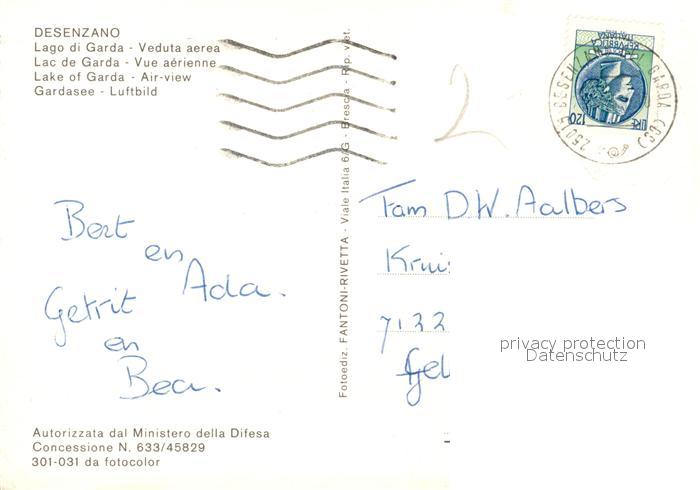 DESENZANO
Lago di Garda - Veduta aerea
Lac de Garda - Vue aérienne
Lake of Garda - Air-view
Gardasee - Luftbild
Bert
en
Ada.
Gerrit
en
Bea.
Autorizzata dal Ministero della Difesa
Concessione N. 633/45829
301-031 da fotocolor
Fotoediz. FANTONI-RIVETTA - Viale Italia 6/G - Brescia - Rip. viet.
2
REPUBBLICA
ITALIANA
LIRE 120
25015 DESENZANO DEL GARDA (BS)
Fam D.W. Aalbers
Krui
7122
Gel
privacy protection
Datenschutz